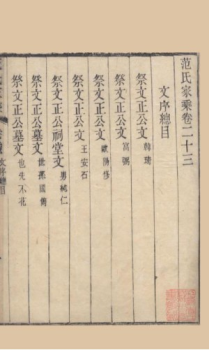 范氏家乘卷二十三
文序總目
祭文正公文 韓琦
祭文正公文 富弼
祭文正公文 歐陽修
祭文正公文 王安石
祭文正公祠堂文 惠純仁
祭文正公墓文
祭文正公墓文 也先不花